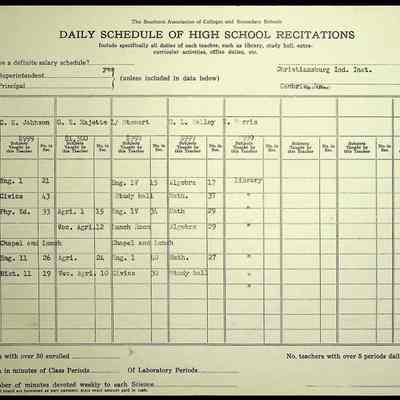 The Southern Association of Colleges and Secondary Schools
DAILY SCHEDULE OF HIGH SCHOOL RECITATIONS
Include specifically all duties of each teacher, such as library, study hall, extra-
curricular activities, office duties, etc.
e a definite salary schedule? yes
Superintendent
Principal
(unless included in data below)
Christiansburg Ind. Inst.
C. E. Johnson G. E. Majette L/ Stewart
Subjects Taught by this Teacher No. in Sec. Subjects Taught by this Teacher No. in Sec. Subjects Taught by this Teacher No. in Sec. Subjects Taught by this Teacher No. in Sec. Subjects Taught by this Teacher No. in Sec. Subjects Taught by this Teacher No. in Sec. Subjects Taught by this Teacher No. in Sec.
Eng. 1 21 Eng. IV 15 Algebra 17 Library
Civics 43 Study hall Math. 37 "
Phy. Ed. 33 Agri. 1 15 Eng. IV 34 Math 29 "
Voc. Agri. 12 Lunch Room Algebra 29 "
Chapel and Lunch Chapel and Lunch
Eng. 11 26 Agri. 24 Eng. 1 40 Math. 27 "
Hist. 11 19 Voc. Agri. 10 Civics 30 Study hall "
s with over 30 enrolled No. teachers with over 5 periods dail
in minutes of Class Periods Of Laboratory Periods
ber of minutes devoted weekly to each Science